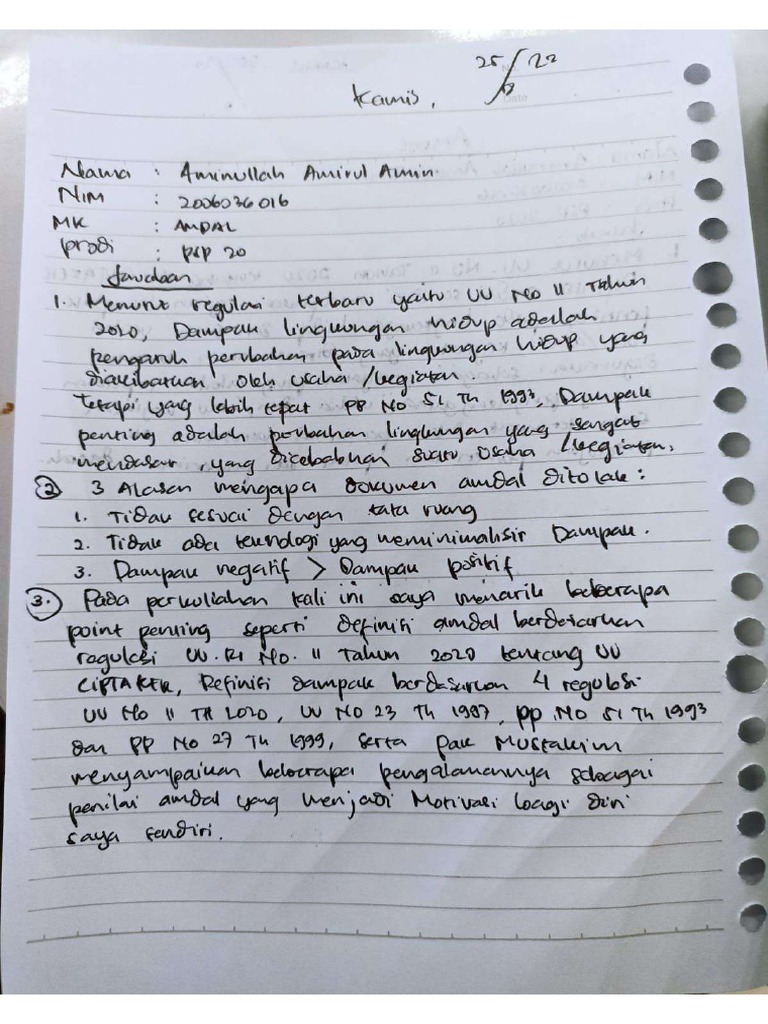 Kamis, 25/8 22
Nama : Aminullah Amirul Amin
NIM : 2006036016
MK : AMDAL
Prodi : PSP 20
Jawaban
1. Menurut regulasi terbaru yaitu UU No 11 Tahun
2020, Dampak lingkungan hidup adalah
pengaruh perubahan pada lingkungan hidup yang
diakibatkan oleh usaha/kegiatan.
Tetapi yang lebih tepat PP No 51 Th 1993, Dampak
penting adalah perubahan lingkungan yang sangat
mendasar, yang disebabkan suatu usaha/kegiatan.
2 3 Alasan mengapa dokumen amdal ditolak :
1. Tidak sesuai dengan tata ruang
2. Tidak ada teknologi yang meminimalisir Dampak.
3. Dampak negatif > Dampak positif
3. Pada perkuliahan kali ini saya menarik beberapa
point penting seperti definisi amdal berdasarkan
regulasi UU.RI No. 11 Tahun 2020 tentang UU
CIPTAKER, Definisi dampak berdasarkan 4 regulasi
UU No 11 TH 2020, UU NO 23 Th 1997, PP NO 51 Th 1993
dan PP No 27 Th 1999, serta pak Mustakim
menyampaikan beberapa pengalamannya sebagai
penilai amdal yang menjadi Motivasi bagi diri
saya sendiri.